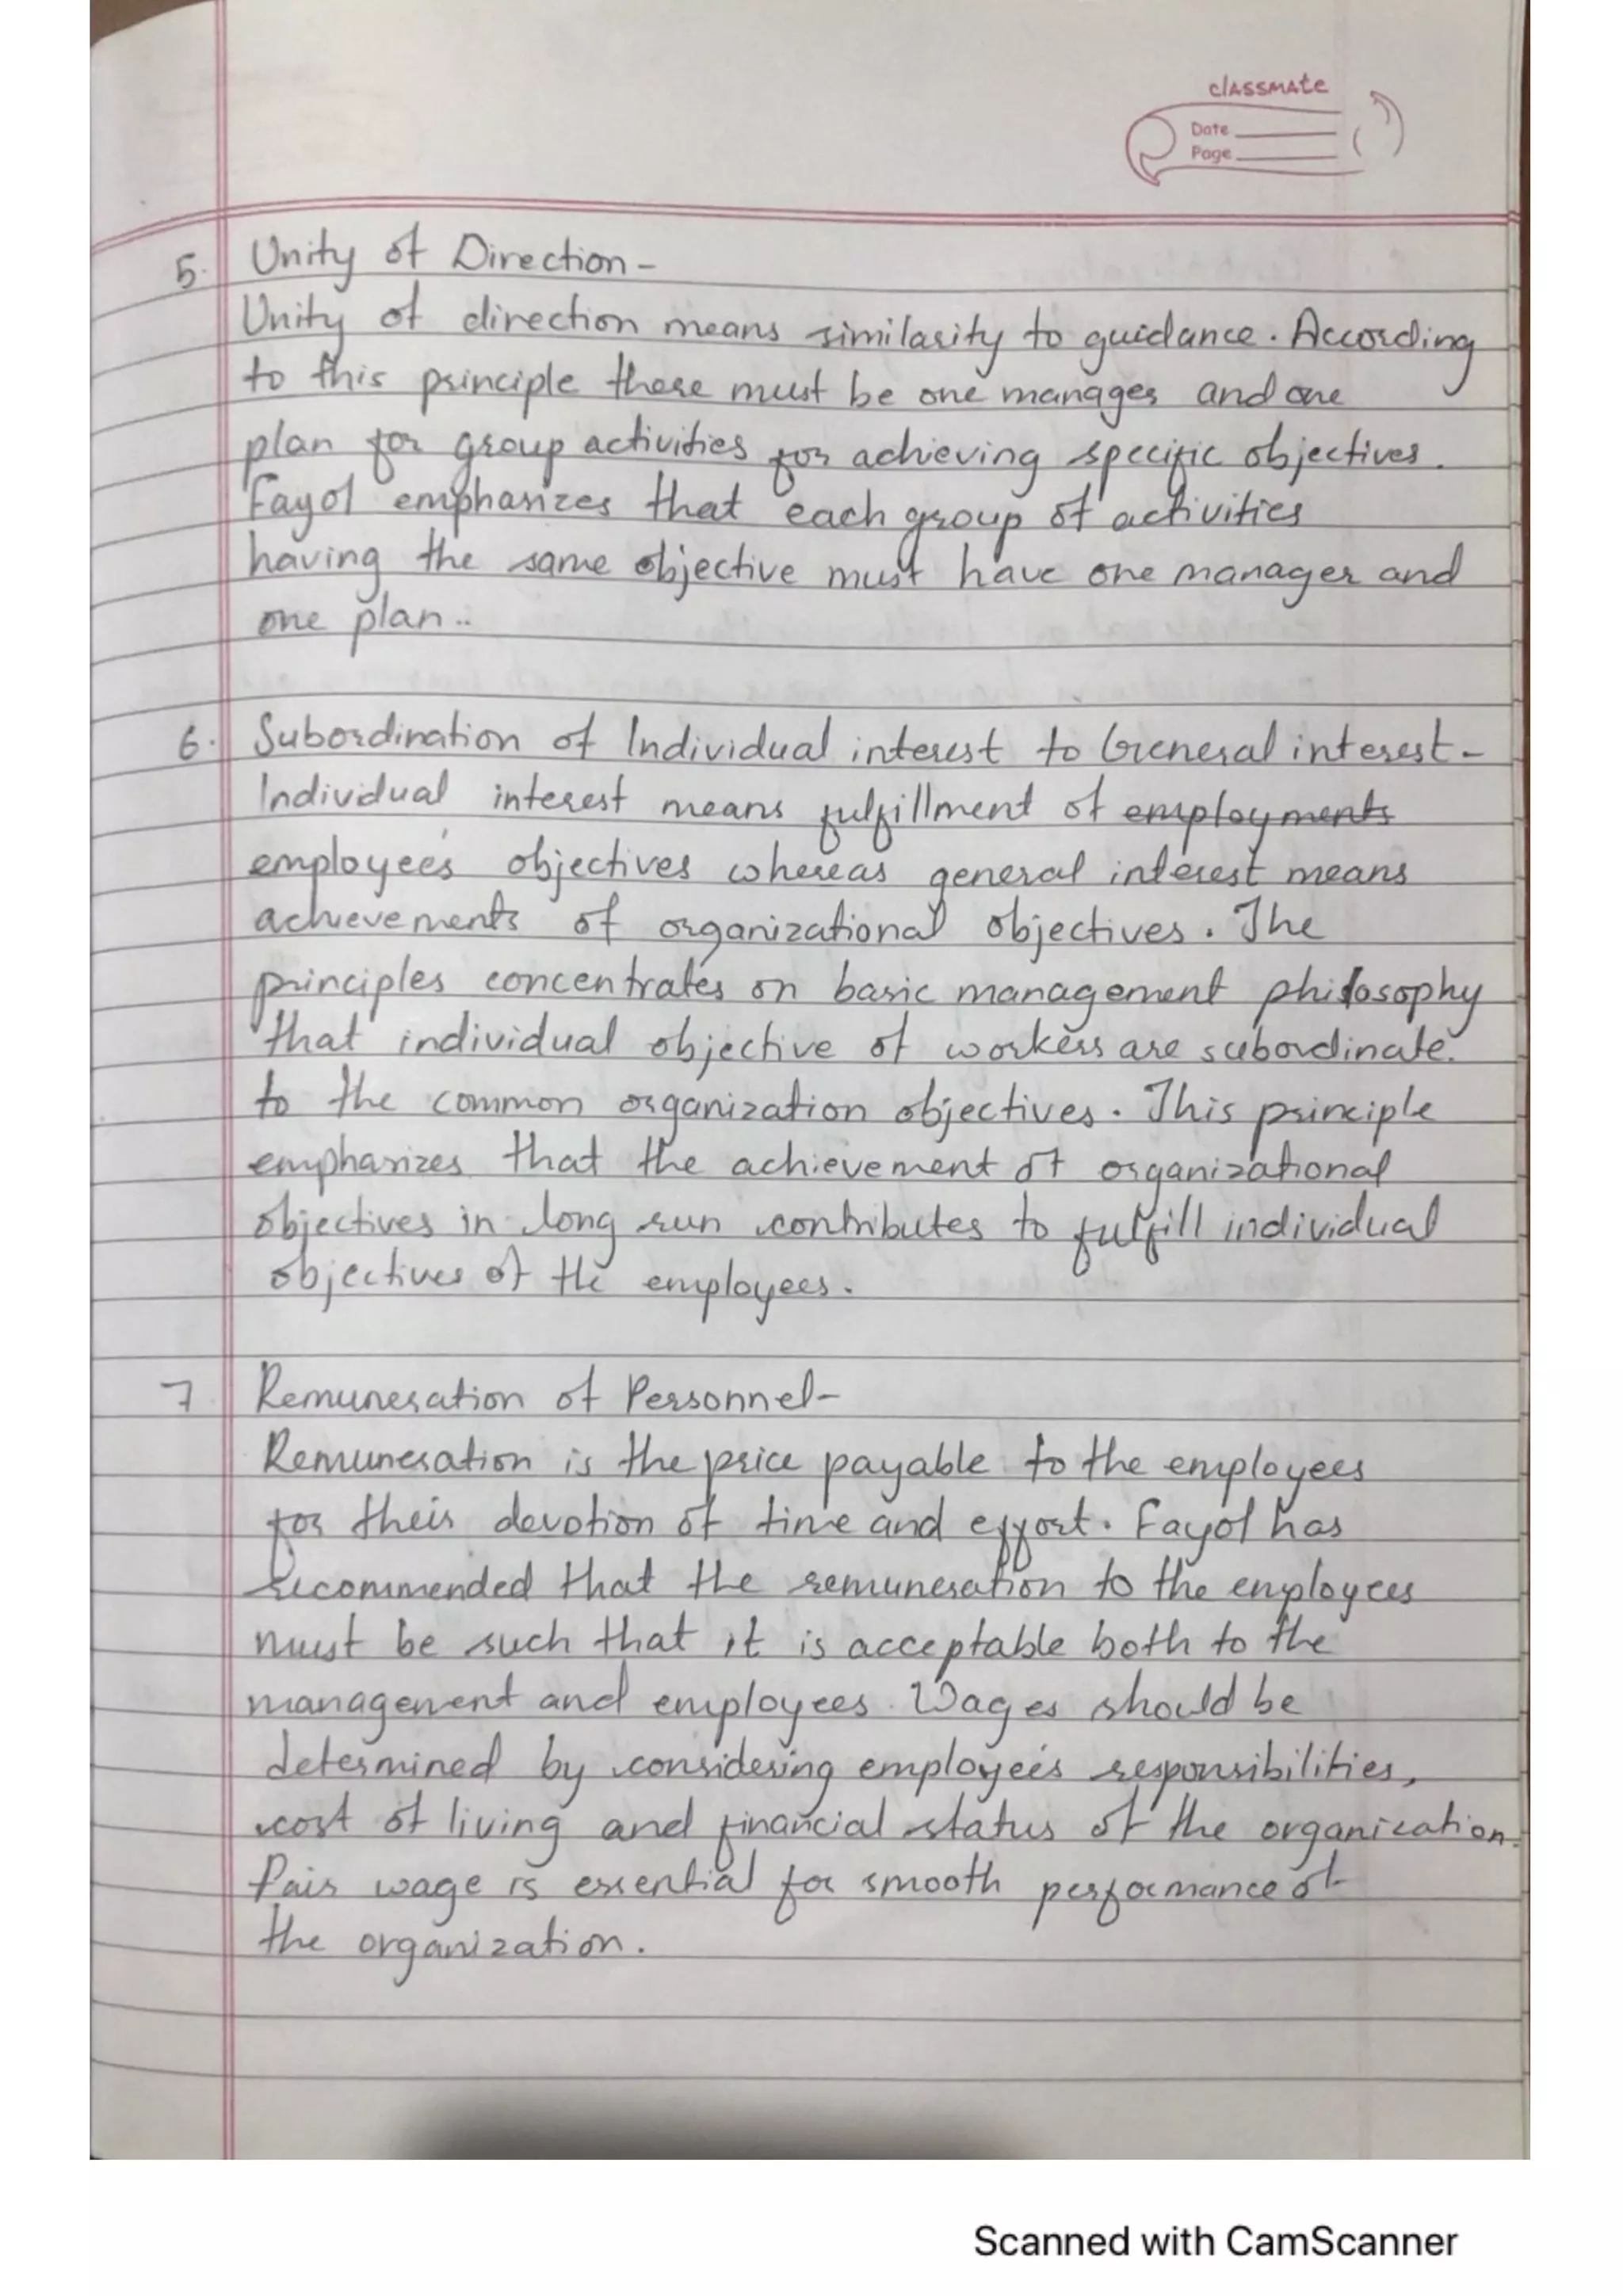 classmate
Date
Page
5. Unity of Direction -
Unity of direction means similarity to guidance. According
to this principle there must be one manager and one
plan for group activities for achieving specific objectives.
Fayol emphasizes that each group of activities
having the same objective must have one manager and
one plan..
6. Subordination of Individual interest to General interest -
Individual interest means fulfillment of employments
employee's objectives whereas general interest means
achievements of organizational objectives. The
principles concentrates on basic management philosophy
that individual objective of workers are subordinate.
to the common organization objectives. This principle
emphasizes that the achievement of organizational
objectives in long run contributes to fulfill individual
objectives of the employees.
7. Remuneration of Personnel -
Remuneration is the price payable to the employees
for their devotion of time and effort. Fayol has
recommended that the remuneration to the employees
must be such that it is acceptable both to the
management and employees. Wages should be
determined by considering employee's responsibilities,
cost of living and financial status of the organization.
Fair wage is essential for smooth performance of
the organization.
Scanned with CamScanner